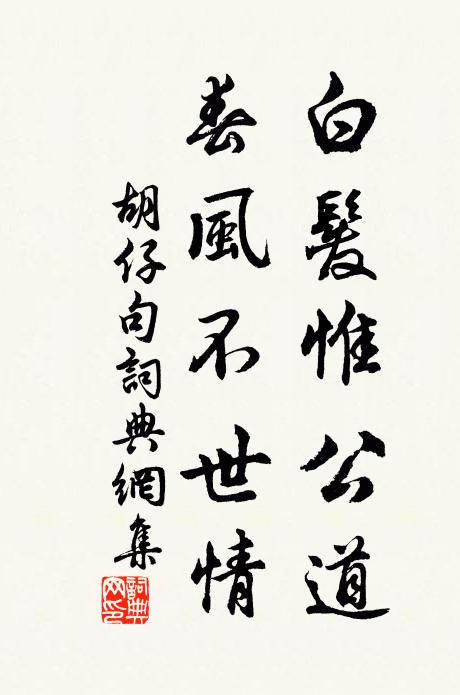 白髮惟公道
春風不世情
胡仔句詞典網集
詞典網印